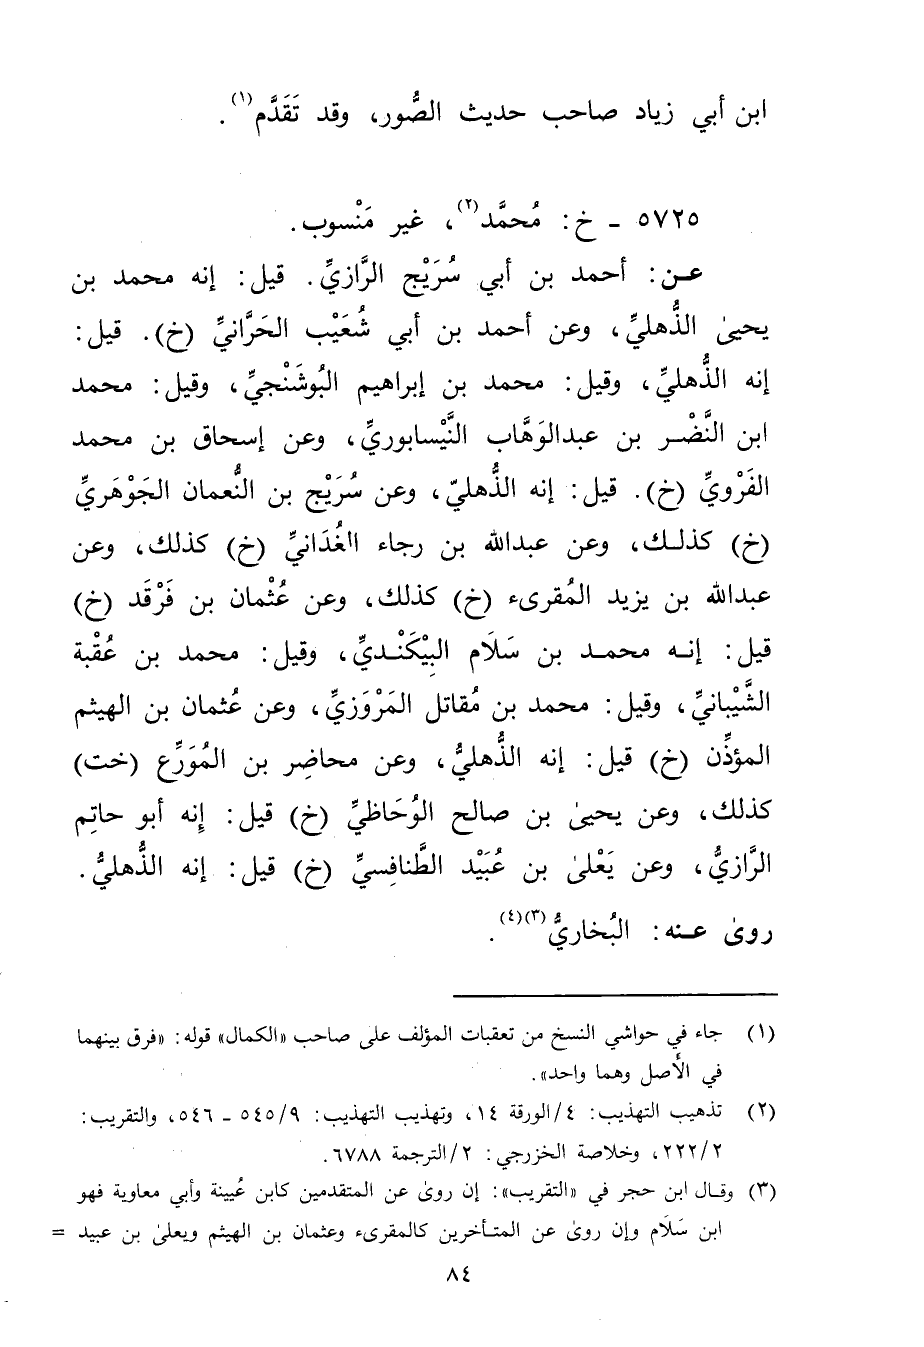 ابن أبي زياد صاحب حديث الصُّور، وقد تَقَدَّم(١).
٥٧٢٥ - خ: مُحمَّد(٢)، غير مَنْسوب.
عـن: أحمد بن أبي سُرَيْج الرَّازيِّ. قيل: إنه محمد بن
يحيىٰ الذُّهليِّ، وعن أحمد بن أبي شُعَيْب الحَرَّانيِّ (خ). قيل:
إنه الذُّهليِّ، وقيل: محمد بن إبراهيم البُوشَنْجيِّ، وقيل: محمد
ابن النَّضْر بن عبدالوَهَّاب النَّيْسابوريِّ، وعن إسحاق بن محمد
الفَرْويِّ (خ). قيل: إنه الذُّهليّ، وعن سُرَيْج بن النُّعمان الجَوْهَريِّ
(خ) كذلـك، وعن عبدالله بن رجاء الغُدَانيِّ (خ) كذلك، وعن
عبدالله بن يزيد المُقرىء (خ) كذلك، وعن عُثْمان بن فَرْقَد (خ)
قيل: إنـه محمـد بن سَلَام البِيْكَنْـديِّ، وقيل: محمد بن عُقْبة
الشَّيْبانيِّ، وقيل: محمد بن مُقاتل المَرْوَزيِّ، وعن عُثمان بن الهيثم
المؤذِّن (خ) قيل: إنه الذُّهليُّ، وعن محاضِر بن المُوَرِّع (خت)
كذلك، وعن يحيىٰ بن صالح الوُحَاظيِّ (خ) قيل: إنه أبو حاتِم
الرَّازيُّ، وعن يَعْلىٰ بن عُبَيْد الطَّنافِسيِّ (خ) قيل: إنه الذُّهليُّ.
روىٰ عـنه: البُخاريُّ(٣)(٤).
(١) جاء في حواشي النسخ من تعقبات المؤلف على صاحب «الكمال» قوله: «فرق بينهما
في الأصل وهما واحد».
(٢) تذهيب التهذيب: ٤/الورقة ١٤، وتهذيب التهذيب: ٥٤٥/٩ - ٥٤٦، والتقريب:
٢٢٢/٢، وخلاصة الخزرجي: ٢/الترجمة ٦٧٨٨.
(٣) وقـال ابن حجر في «التقريب»: إن روىٰ عن المتقدمين كابن عُيينة وأبي معاوية فهو
ابن سَلَام وإن روىٰ عن المتـأخرين كالمقرىء وعثمان بن الهيثم ويعلىٰ بن عبيد =
٨٤